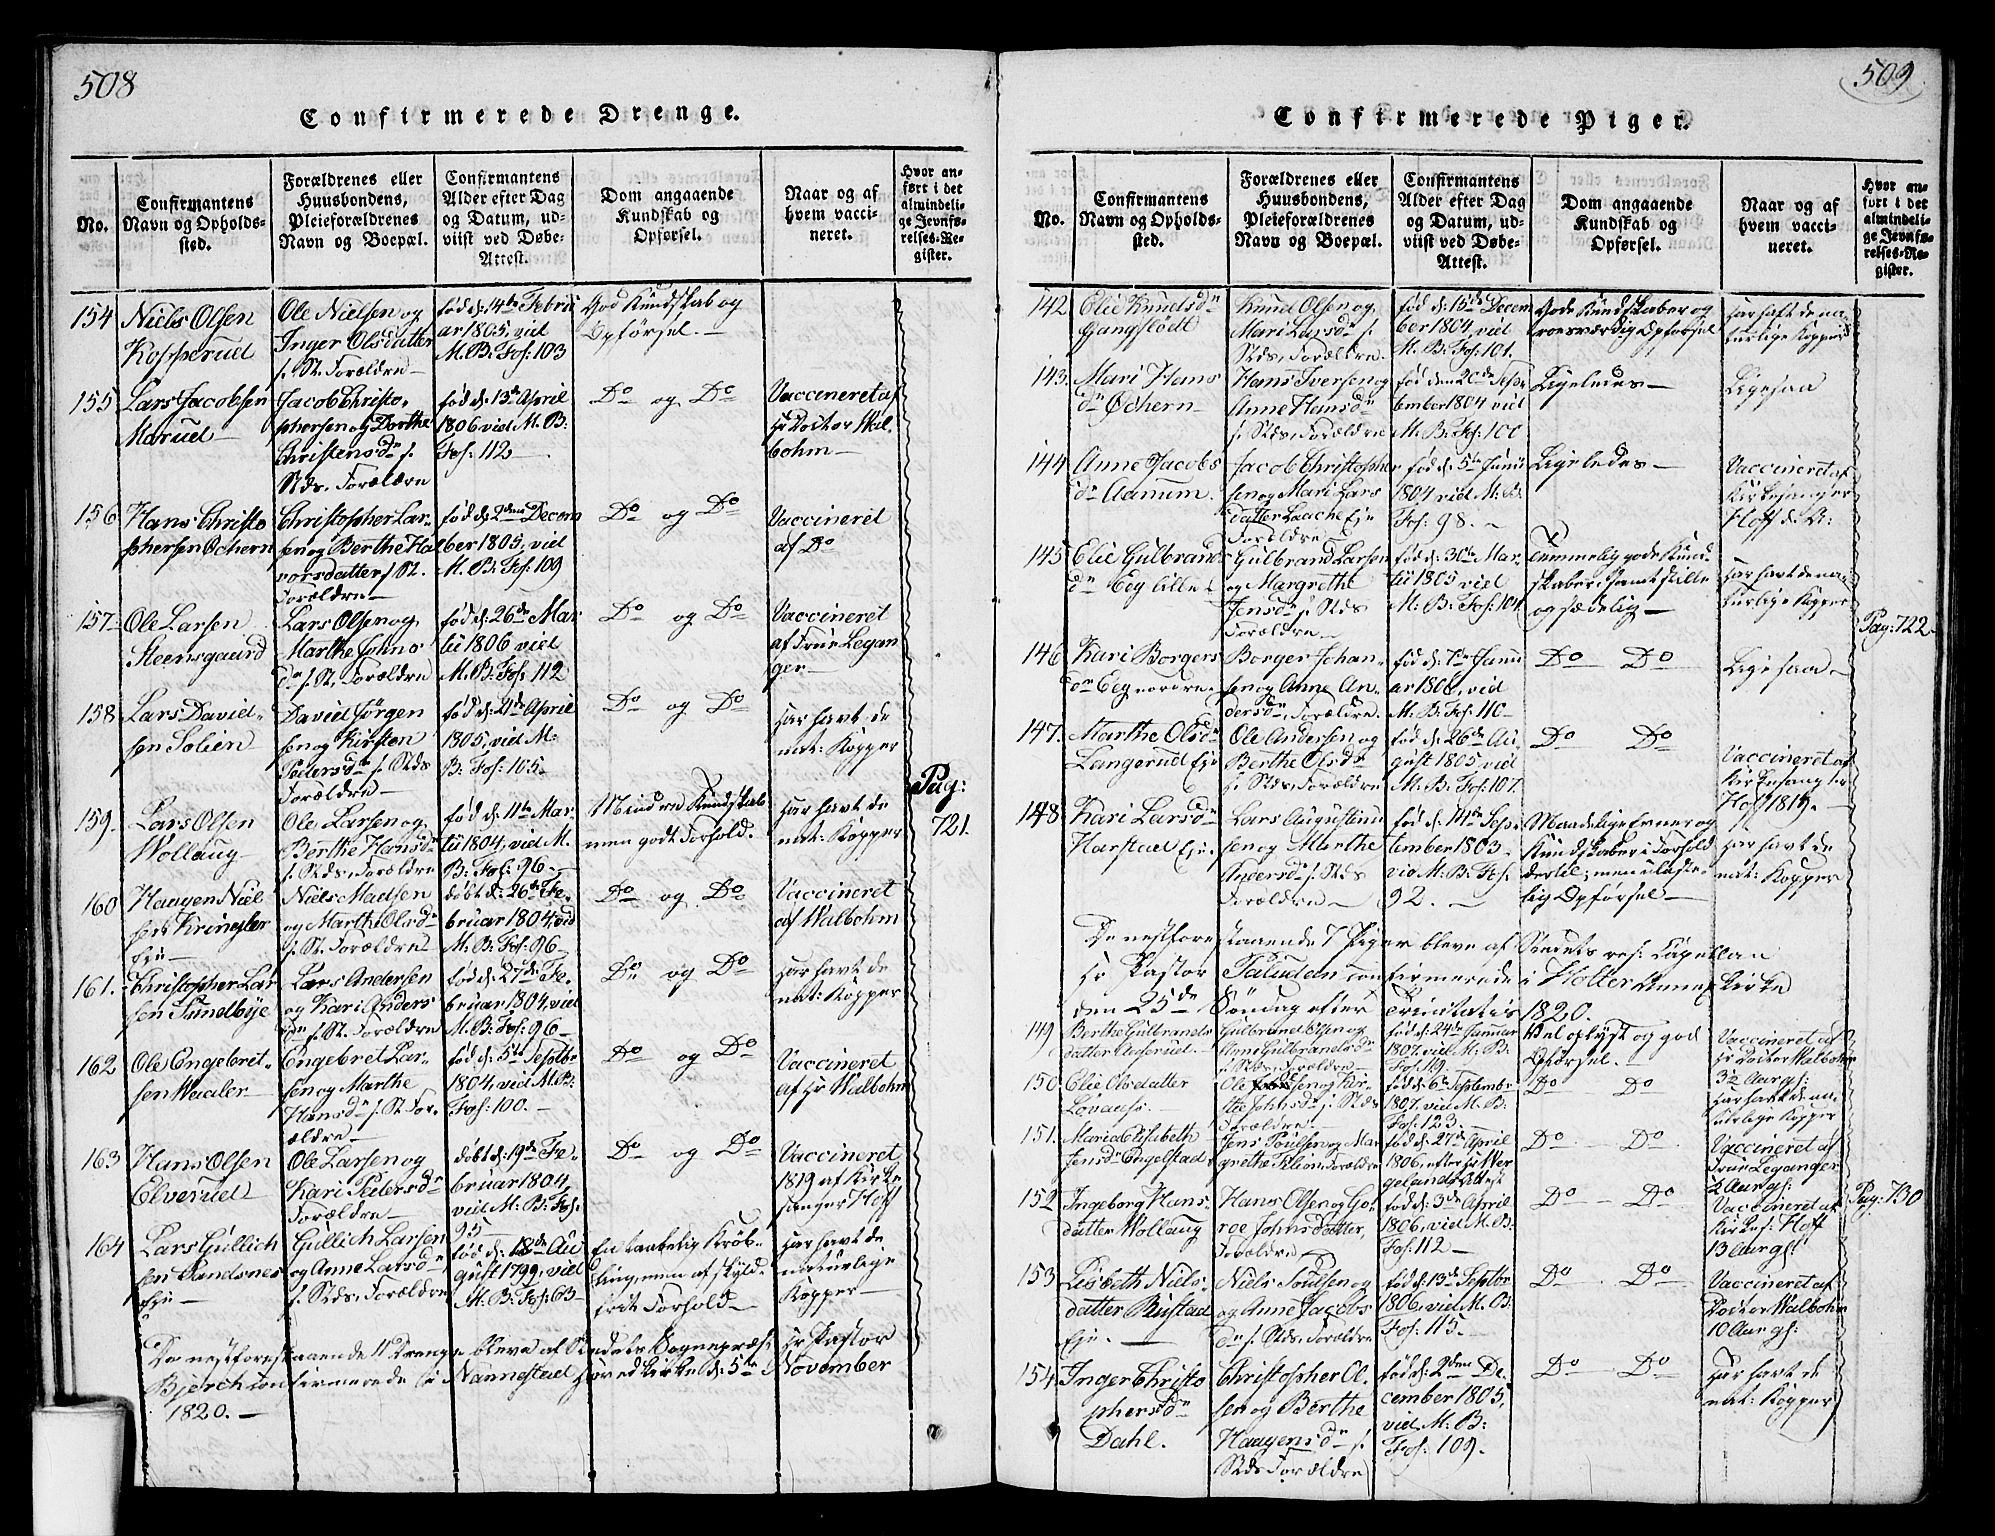 508
Confirmerede Drenge.
No.
Confirmantens
Navn og Opholds-
sted.
Forældrenes eller
Huusbondens,
Pleieforældrenes
Navn og Boepæl.
Confirmantens
Alder efter Dag
og Datum, ud-
viist ved Døbe-
Attest.
Dom angaaende
Kundskab og
Opførsel.
Naar og af
hvem vacci-
neret.
Hvor an-
ført i det
almindeli-
ge Jevnfø-
relses-Re-
gister.
154
Niels Olsen
Kopperud
Ole Nielsen og
Inger Olsdatter
s. St. Forældre
fød d: 14de Febru
ar 1805, vid
M. B: Fos: 103
God Kundskab og
Opførsel.
155
Lars Jacobsen
Marud
Jacob Christo-
phersen og Dorthe
Christensdr s.
Stds. Forældre
fød d: 13de April
1806 vid M. B:
Fos: 112
Do og Do
Vaccineret af
Hr Doctor Wal-
bohm
156
Hans Christo
phersen Ochern
Christopher Lar-
sen og Berthe Hal
vorsdatter s. St.
Forældre
fød d: 2den Decem
ber 1805, vid
M. B: Fos: 109
Do og Do
Vaccineret
af Do
157
Ole Larsen
Steensgaard
Lars Olsen og
Marthe Johns
dr s. St. Forældre
fød d: 26de Mar
tii 1806 vid
M. B: Fos: 112
Do og Do
Vaccineret
af Frue Legan
ger
158
Lars David-
sen Solien
David Jørgen
sen og Kirsten
Pedersdr s. Stds
Forældre
fød d: 21de April
1805, vid M.
B: Fos: 105.
Do og Do
Har havt de
nat: Kopper
159.
Lars Olsen
Wollaug
Ole Larsen og
Berthe Hansdr
s. Stds. Forældre
fød d: 11te Mar
tii 1804, vid M.
B: Fos: 96
Mindre Kundskab
men godt Forhold.
Har havt de
nat: Kopper
Pag:
721.
160
Haagen Niel
sen Kringler
Eje
Niels Madsen
og Marthe Olsdr
s. St. Forældre
døbt d: 26de Fe-
bruar 1804, vid
M. B: Fos: 96
Do og Do
Vaccineret
af Walbohm
161.
Christopher Lar
sen Sundbye
Lars Andersen
og Kari Anders
dr s. St. Forældre
fød d: 27de Fe-
bruar 1804, vid
M. B: Fos: 96
Do og Do
Har havt de
nat: Kopper
162
Ole Engebret-
sen Waaler
Engebret Lar-
sen og Marthe
Hansdr s. St. For-
ældre
fød d: 5te Septbr
1804, vid M. B:
Fos: 100.
Do og Do
Vaccineret
af Hr Walbohm
163
Hans Olsen
Elverud
Ole Larsen og
Kari Pedersdr
Forældre
døbt d: 19de Fe-
bruar 1804,
vid M. B: Fos:
95
Do og Do
Vaccineret
1819 af Kirke
sanger Hoff
164
Lars Gullich
sen Sandsnes
Eje
Gullich Larsen
og Anne Larsdr
s. Stds. Forældre
fød d: 18de Au
gust 1799, vid
M. B: Fos: 63
En taabelig Krøb-
ling, men af skyld-
frit Forhold
Har havt de
naturlige
Kopper
De nestforestaaende 11 Drenge bleve af Stedets Sognepræst Hr Pastor
Bjerch confirmerede i Nannestad Hovedkirke d: 5te November
1820.
509
Confirmerede Piger.
No.
Confirmantens
Navn og Opholds-
sted.
Forældrenes eller
Huusbondens,
Pleieforældrenes
Navn og Boepæl.
Confirmantens
Alder efter Dag
og Datum, ud-
viist ved Døbe-
Attest.
Dom angaaende
Kundskab og
Opførsel.
Naar og af
hvem vacci-
neret.
Hvor an-
ført i det
almindeli-
ge Jevnfø-
relses-Re-
gister.
142
Elie Knudsdr
Knud Olsen og
Mari Larsdr s.
Stds. Forældre.
fød d: 15de Decem
ber 1804, vid
M. B: Fos: 101.
Gode Kundskaber og
roesværdig Opførsel
Har havt de na-
turlige Kopper
143.
Mari Hans
dr Ochern
Hans Iversen og
Anne Hansdr
s. Stds. Forældre
fød den 20de Sept
ember 1804 vid
M. B: Fos: 100
Ligeledes
Ligesaa
144
Anne Jacobs
dr Aanum.
Jacob Christopher
sen og Mari Lars
datter Laache Eje
Forældre
fød d: 5te Junii
1804 vid M: B.
Fos: 98.
Ligeledes
Vaccineret af
Kirkesanger
Hoff d. A:
145
Elie Gulbrands
dr Eeg lille
Gulbrand Larsen
og Margrethe
Jensdr s. Stds
Forældre
fød d: 30te Mar-
tii 1805 vid
M: B: Fos: 104
Temmelig gode Kund
skaber, samt stille
og sædelig
Har havt de na-
turlige Kopper
Pag: 722.
146
Kari Borgers
dr Eeg nordre.
Borger Johan-
sen og Anne An-
dersdr, Forældre.
fød d: 7de Janu
ar 1806, vid
M. B: Fos: 110
Do Do
Ligesaa
147.
Marthe Olsdr
Langerud Eje
Ole Andersen og
Berthe Olsdr
s. Stds. Forældre
fød d: 26de Au
gust 1805 vid
M. B: Fos: 107.
Do Do
Vaccineret af
Kirkesanger
Hoff 1819.
148
Kari Larsdr
Harstad Eje.
Lars Augustinu
sen og Marthe
Andersdr s. Stds
Forældre
fød d: 14de Sep-
tember 1803
vid M: B: Fos:
92.
Maadelige Evner og
Kundskaber i Forhold
dertil; men ulaste-
lig Opførsel
Har havt de
nat: Kopper
De nestforestaaende 7 Piger bleve af Stedets res: Capellan
Hr Pastor Paludan confirmerede i Holter Annex Kirke
den 25de Søndag efter Trinitatis 1820.
149
Berthe Gulbrands
datter Aaserud.
Gulbrand Olsen og
Anne Gulbrandsdr
s. Stds. Forældre
fød d: 24de Januar
1807. vid M: B:
Fos: 119.
Vel oplyst og god
Opførsel.
Vaccineret af
Hr Doctor Walbohm
3½ Aar gl:
150
Elie Olsdatter
Løvaas.
Ole
s. Stds
Forældre
fød d: 6te Septembr
1807, vid M. B:
Fos: 123.
Do Do
Har havt de na-
turlige Kopper
151.
Maria Elisabeth
Jensdr Engelstad
Jens Poulsen og Mar
grethe Forældre
fød d: 27de April
1806, efter
Attest
Do Do
Vaccineret af
Frue Leganger
2 Aar gl:
152
Ingeborg Hans-
datter Wollaug
Hans Olsen og Go-
roe Johnsdatter,
Forældre
fød d: 3de April
1806, vid M. B:
Fos: 112
Do Do
Vaccineret af
Kirkes: Hoff
13 Aar gl:
Pag: 730
153
Lisbeth Niels-
datter Bustad
Eje.
Niels Poulsen og
og Anne Jacobs
dr s. Stds. Forældre
fød d: 13de Septbr
1806, vid M. B:
Fos: 115.
Do Do
Vaccineret af
Doctor Walbohm
10 Aar gl:
154
Inger Christo
phersdr
Dahl.
Christopher Ol
sen og Berthe
Haagensdr s.
Stds Forældre
fød d: 2den De
cember 1805,
vid M. B:
Fos: 109.
Do Do
Har havt de
nat: Kopper